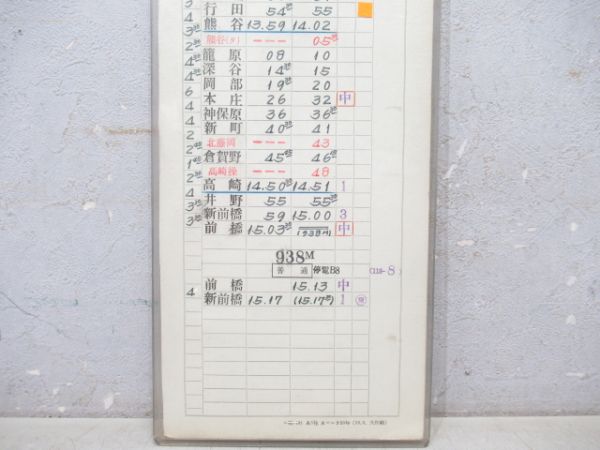 行田 54 55
3 熊谷 13.59 14.02
2 熊谷(タ) --- 05
4 籠原 08 10
4 深谷 14 15
4 岡部 19 20
6 本庄 26 32 中
4 神保原 36 36
4 新町 40 41
2 北藤岡 --- 43
1 倉賀野 45 46
2 高崎操 --- 48
4 高崎 14.50 14.51 1
3 井野 55 55
3 新前橋 59 15.00 3
前橋 15.03 (938M) 中
938M
普通 停電B8
前橋 15.13 中
4 新前橋 15.17 (15.17) 1